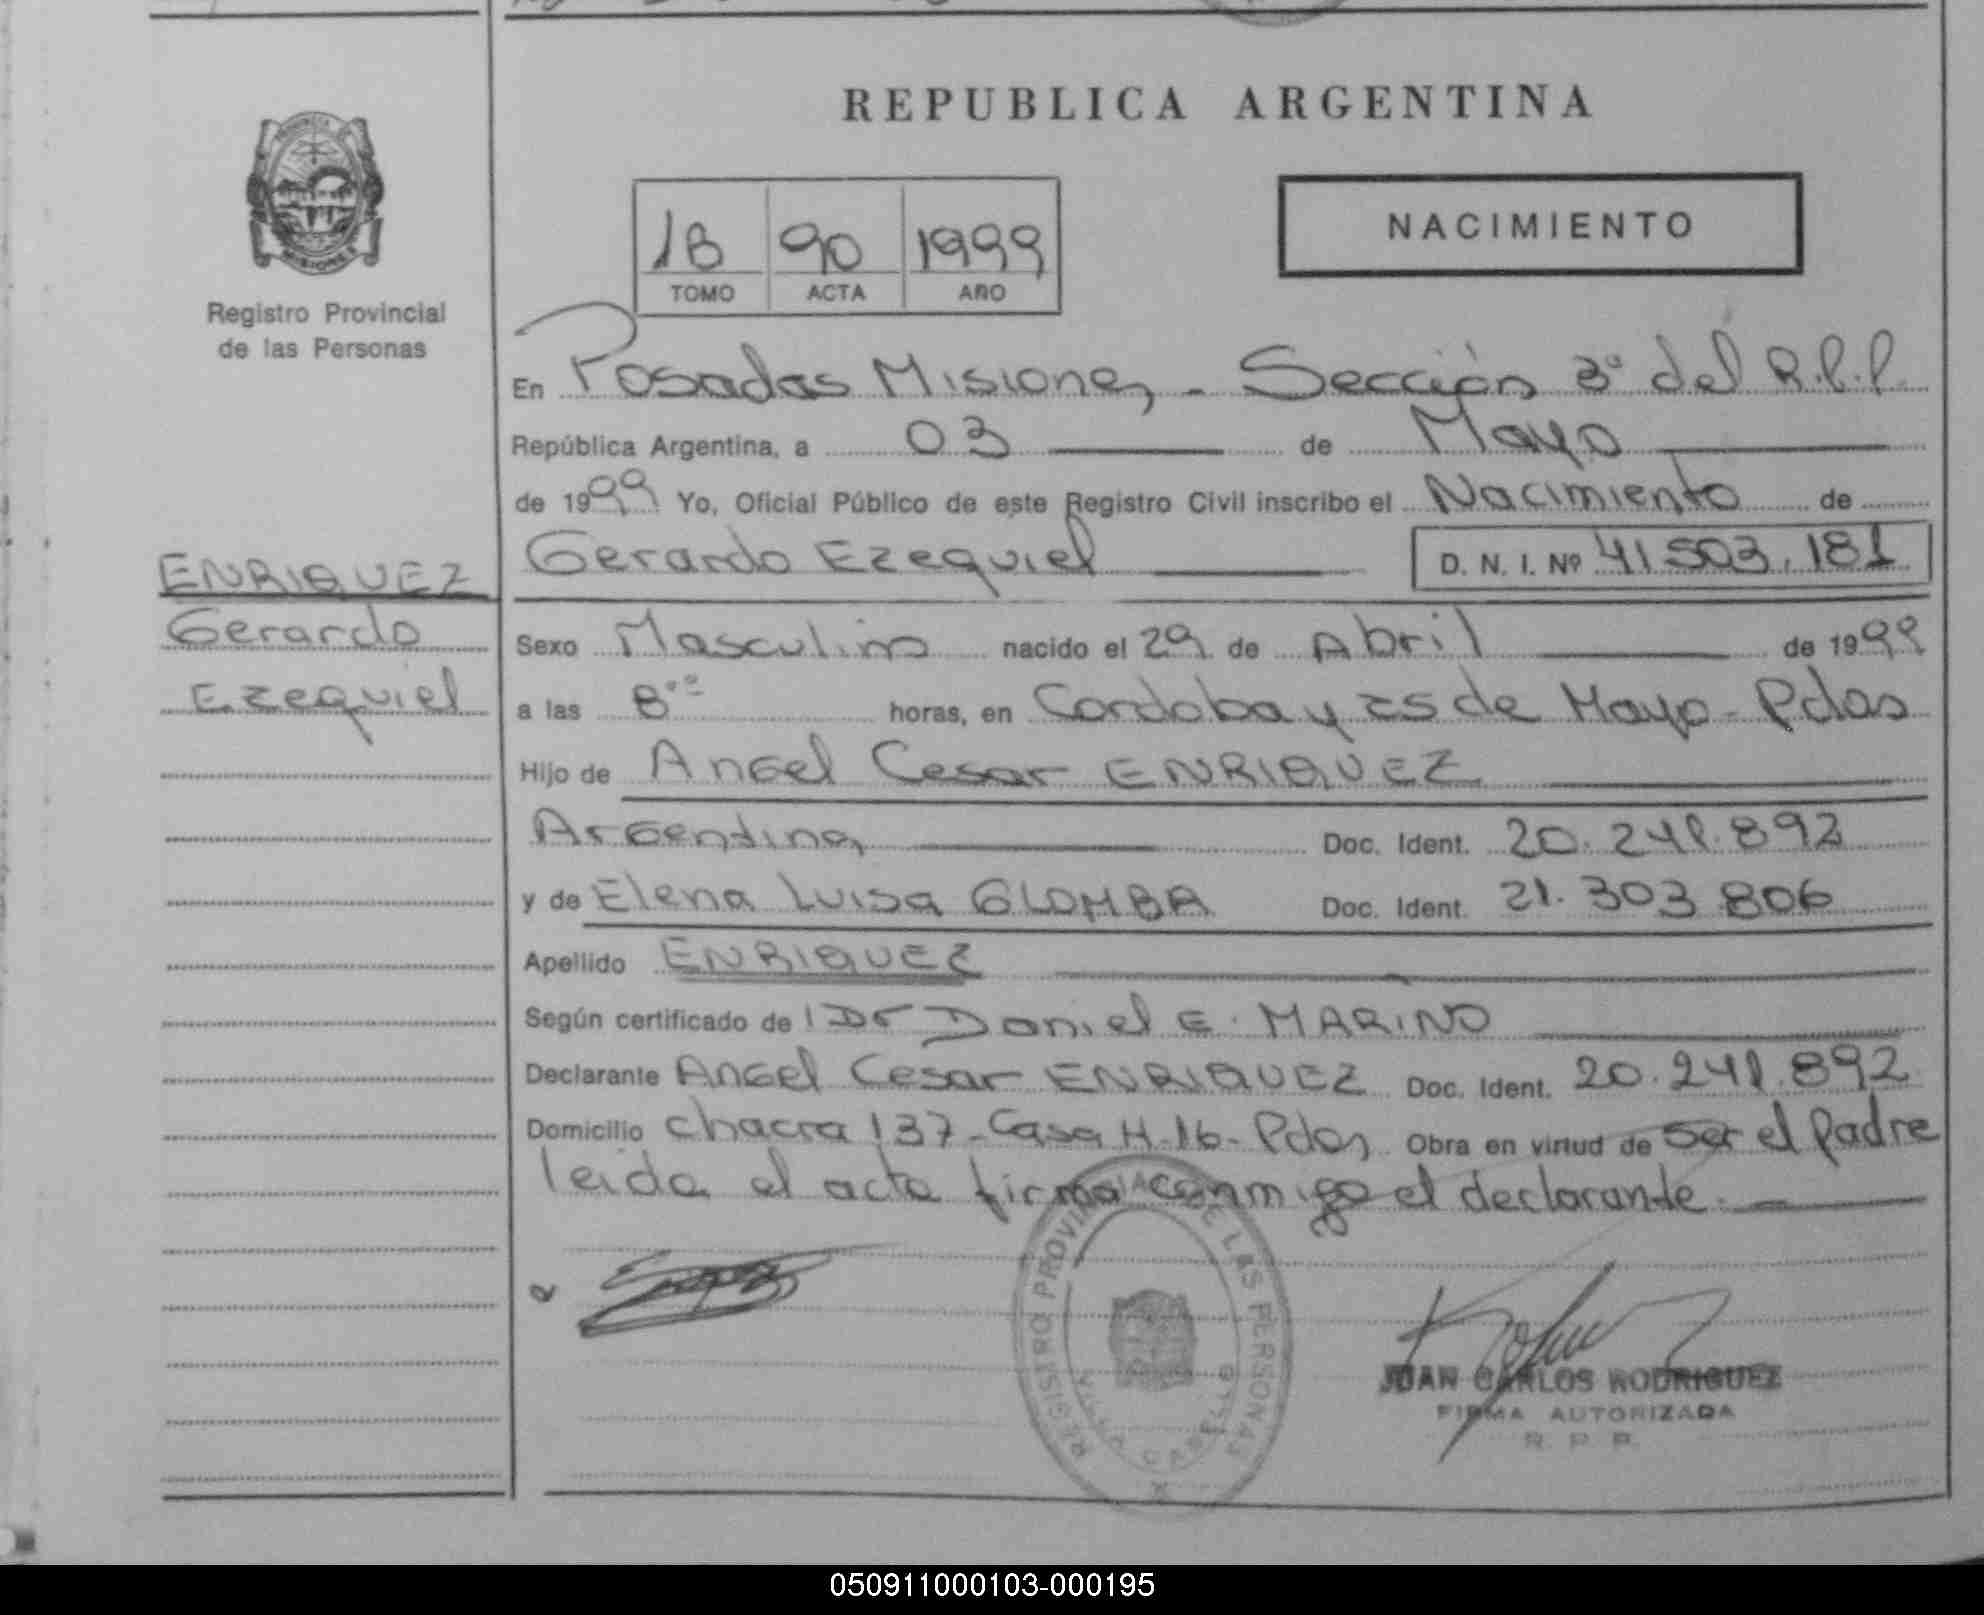 REPUBLICA ARGENTINA
NACIMIENTO
1B 90 1999
TOMO ACTA AÑO
PROVINCIA DE
MISIONES
Registro Provincial
de las Personas
En Posadas Misiones - Sección 3° del R.P.P.
República Argentina, a 03 de Mayo
de 1999 Yo, Oficial Público de este Registro Civil inscribo el Nacimiento de
Gerardo Ezequiel D. N. I. Nº 41 503.181
ENRIQUEZ
Gerardo
Ezequiel
Sexo Masculino nacido el 29 de Abril de 1999
a las 8°° horas, en Cordoba y 25 de Mayo - Pdas
Hijo de Angel Cesar ENRIQUEZ
Argentina Doc. Ident. 20.241.892
y de Elena Luisa GLOMBA Doc. Ident. 21.303.806
Apellido ENRIQUEZ
Según certificado de Dr Daniel E. MARINO
Declarante Angel Cesar ENRIQUEZ Doc. Ident. 20.241.892
Domicilio chacra 137 - Casa H-16 - Pdas Obra en virtud de Ser el Padre
leida el acta firma conmigo el declarante.
REGISTRO PROVINCIAL DE LAS PERSONAS
VILLA CABELLO
JUAN CARLOS RODRIGUEZ
FIRMA AUTORIZADA
R. P. P.
050911000103-000195